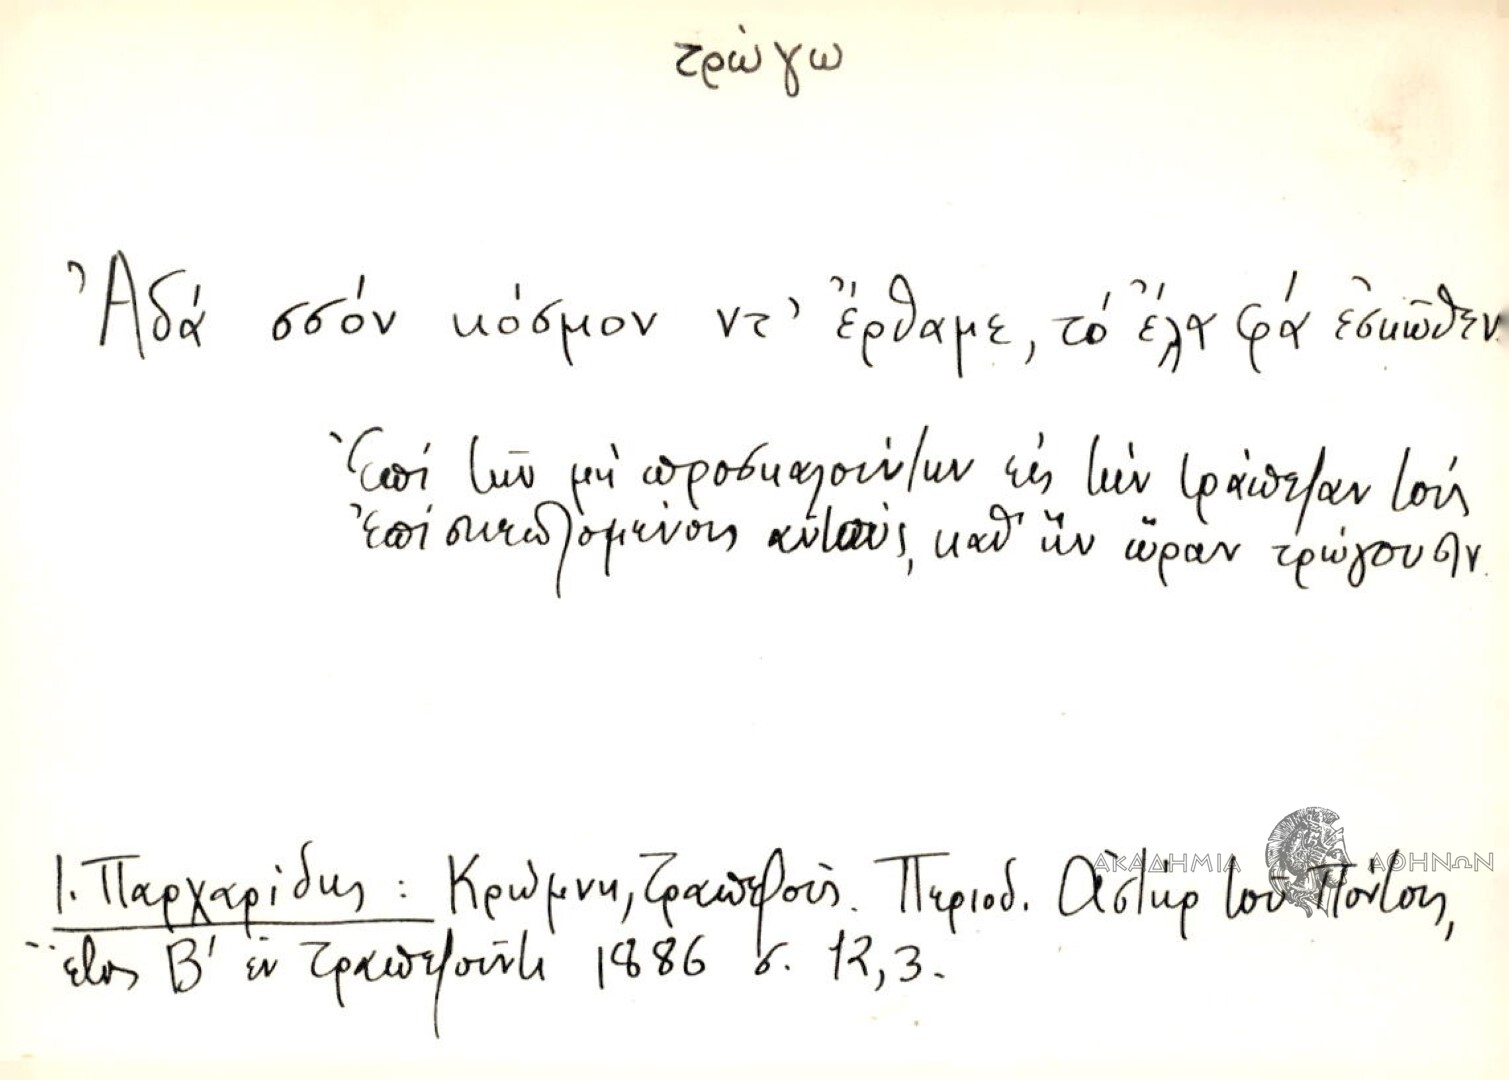 τρώγω
Ἀδά σσόν κόσμον ντ' ἔρθαμε, τό ἔλα φά ἐσκῶθεν.
Ἐπί τῶν μή προσκαλούντων εἰς τήν τράπεζαν τούς
ἐπισκεπτομένους αὐτούς, καθ' ἥν ὥραν τρώγουσιν.
Ι. Παρχαρίδης: Κρώμνη, Τραπεζοῦς. Περιοδ. Ἀστήρ τοῦ Πόντου,
ἔτος Β' ἐν Τραπεζοῦντι 1886 σ. 12,3.
ΑΚΑΔΗΜΙΑ ΑΘΗΝΩΝ